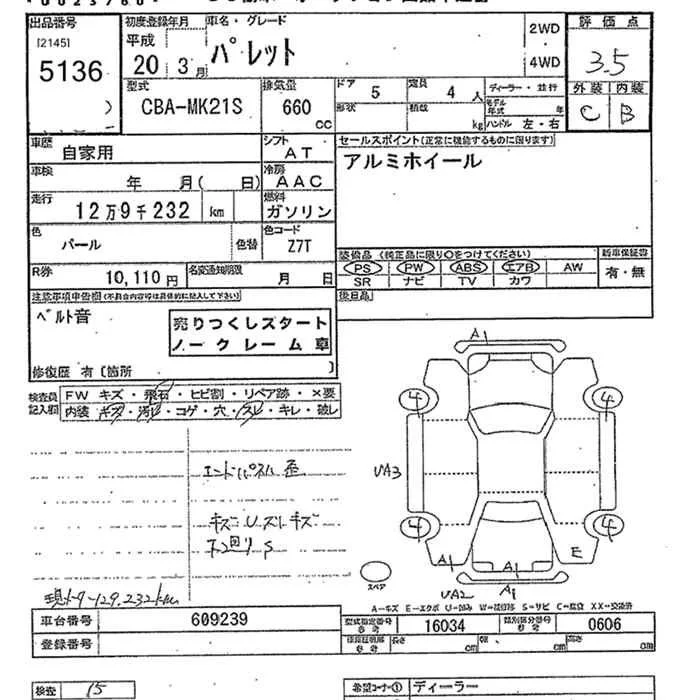 出品番号
[2145]
5136
初度登録年月
平成
20年3月
車名・グレード
パレット
2WD
4WD
評価点
3.5
外装 内装
C B
型式
CBA-MK21S
排気量
660
CC
ドア 5
形状
定員 4人
積載 kg
ディーラー・並行
モデル年式 年
ハンドル 左・右
車歴
自家用
シフト
AT
車検
年 月( 日)
冷房
AAC
走行
12万9千232 km
燃料
ガソリン
色
パール
色替
色コード
Z7T
R券
10,110円
名変通知期限
月 日
セールスポイント(正常に機能するものに限ります)
アルミホイール
装備品 (純正品に限り〇をつけてください)
PS PW ABS エアB AW
SR ナビ TV カワ
新車保証書
有・無
後日品
注意事項申告欄(不具合内容等は具体的に記入して下さい)
ベルト音
売りつくしスタート
ノークレーム車
修復歴 有〔箇所 〕
検査員
記入欄
FW キズ・飛石・ヒビ割・リペア跡・×要
内装 キズ・汚レ・コゲ・穴・スレ・キレ・破レ
キズ U ズレ キズ
下回り S
129.232km
A1
4 4
UA3
4 4
A1 A1 E
スペア
UA2 A1
A-キズ E-エクボ U-凹み W-波打ち S-サビ C-腐食 XX-交換済
車台番号
609239
登録番号
型式指定番号
参考
16034
類別区分番号
参考
0606
長さ cm
幅 cm
高さ cm
検査 15
希望コーナー① ディーラー